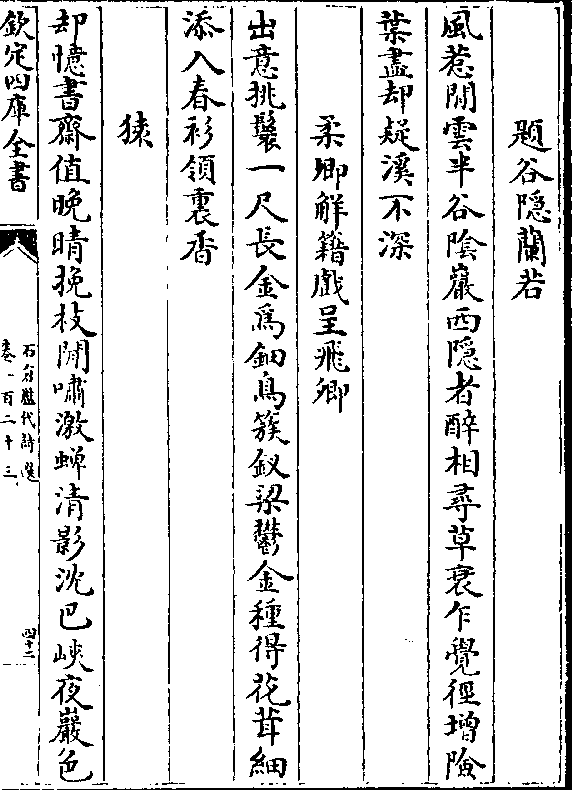 題谷隱蘭若
風惹閒雲半谷陰巖西隱者醉相尋草衰乍覺徑增險
葉盡却疑溪不深
柔卿觧籍戲呈飛卿
出意挑鬟一尺長金爲鈿鳥簇釵梁鬱金種得花茸細
添入春衫領裏香
猿
却憶書齋值晚晴挽枝閒嘯激蟬清影沈巴峽夜巖色
欽定四庫全書
石倉歷代詩選
卷一百二十三
四十二